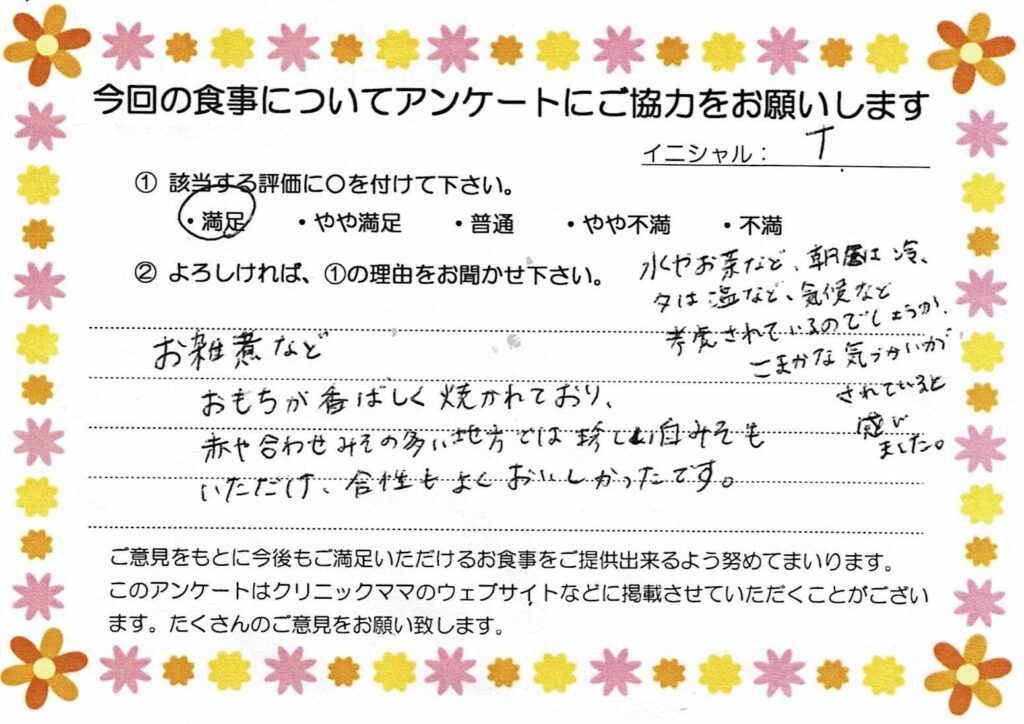 今回の食事についてアンケートにご協力をお願いします
イニシャル： T
① 該当する評価に〇を付けて下さい。
・満足 ・やや満足 ・普通 ・やや不満 ・不満
② よろしければ、①の理由をお聞かせ下さい。
水やお茶など、朝昼は冷、
夕は温など、気候など
考慮されているのでしょうか、
こまかな気づかいが
されていると
感じ
ました。
お雑煮など
おもちが香ばしく焼かれており、
赤や合わせみその多い地方では珍しい白みそも
いただけ、合性もよくおいしかったです。
ご意見をもとに今後もご満足いただけるお食事をご提供出来るよう努めてまいります。
このアンケートはクリニックママのウェブサイトなどに掲載させていただくことがござい
ます。たくさんのご意見をお願い致します。